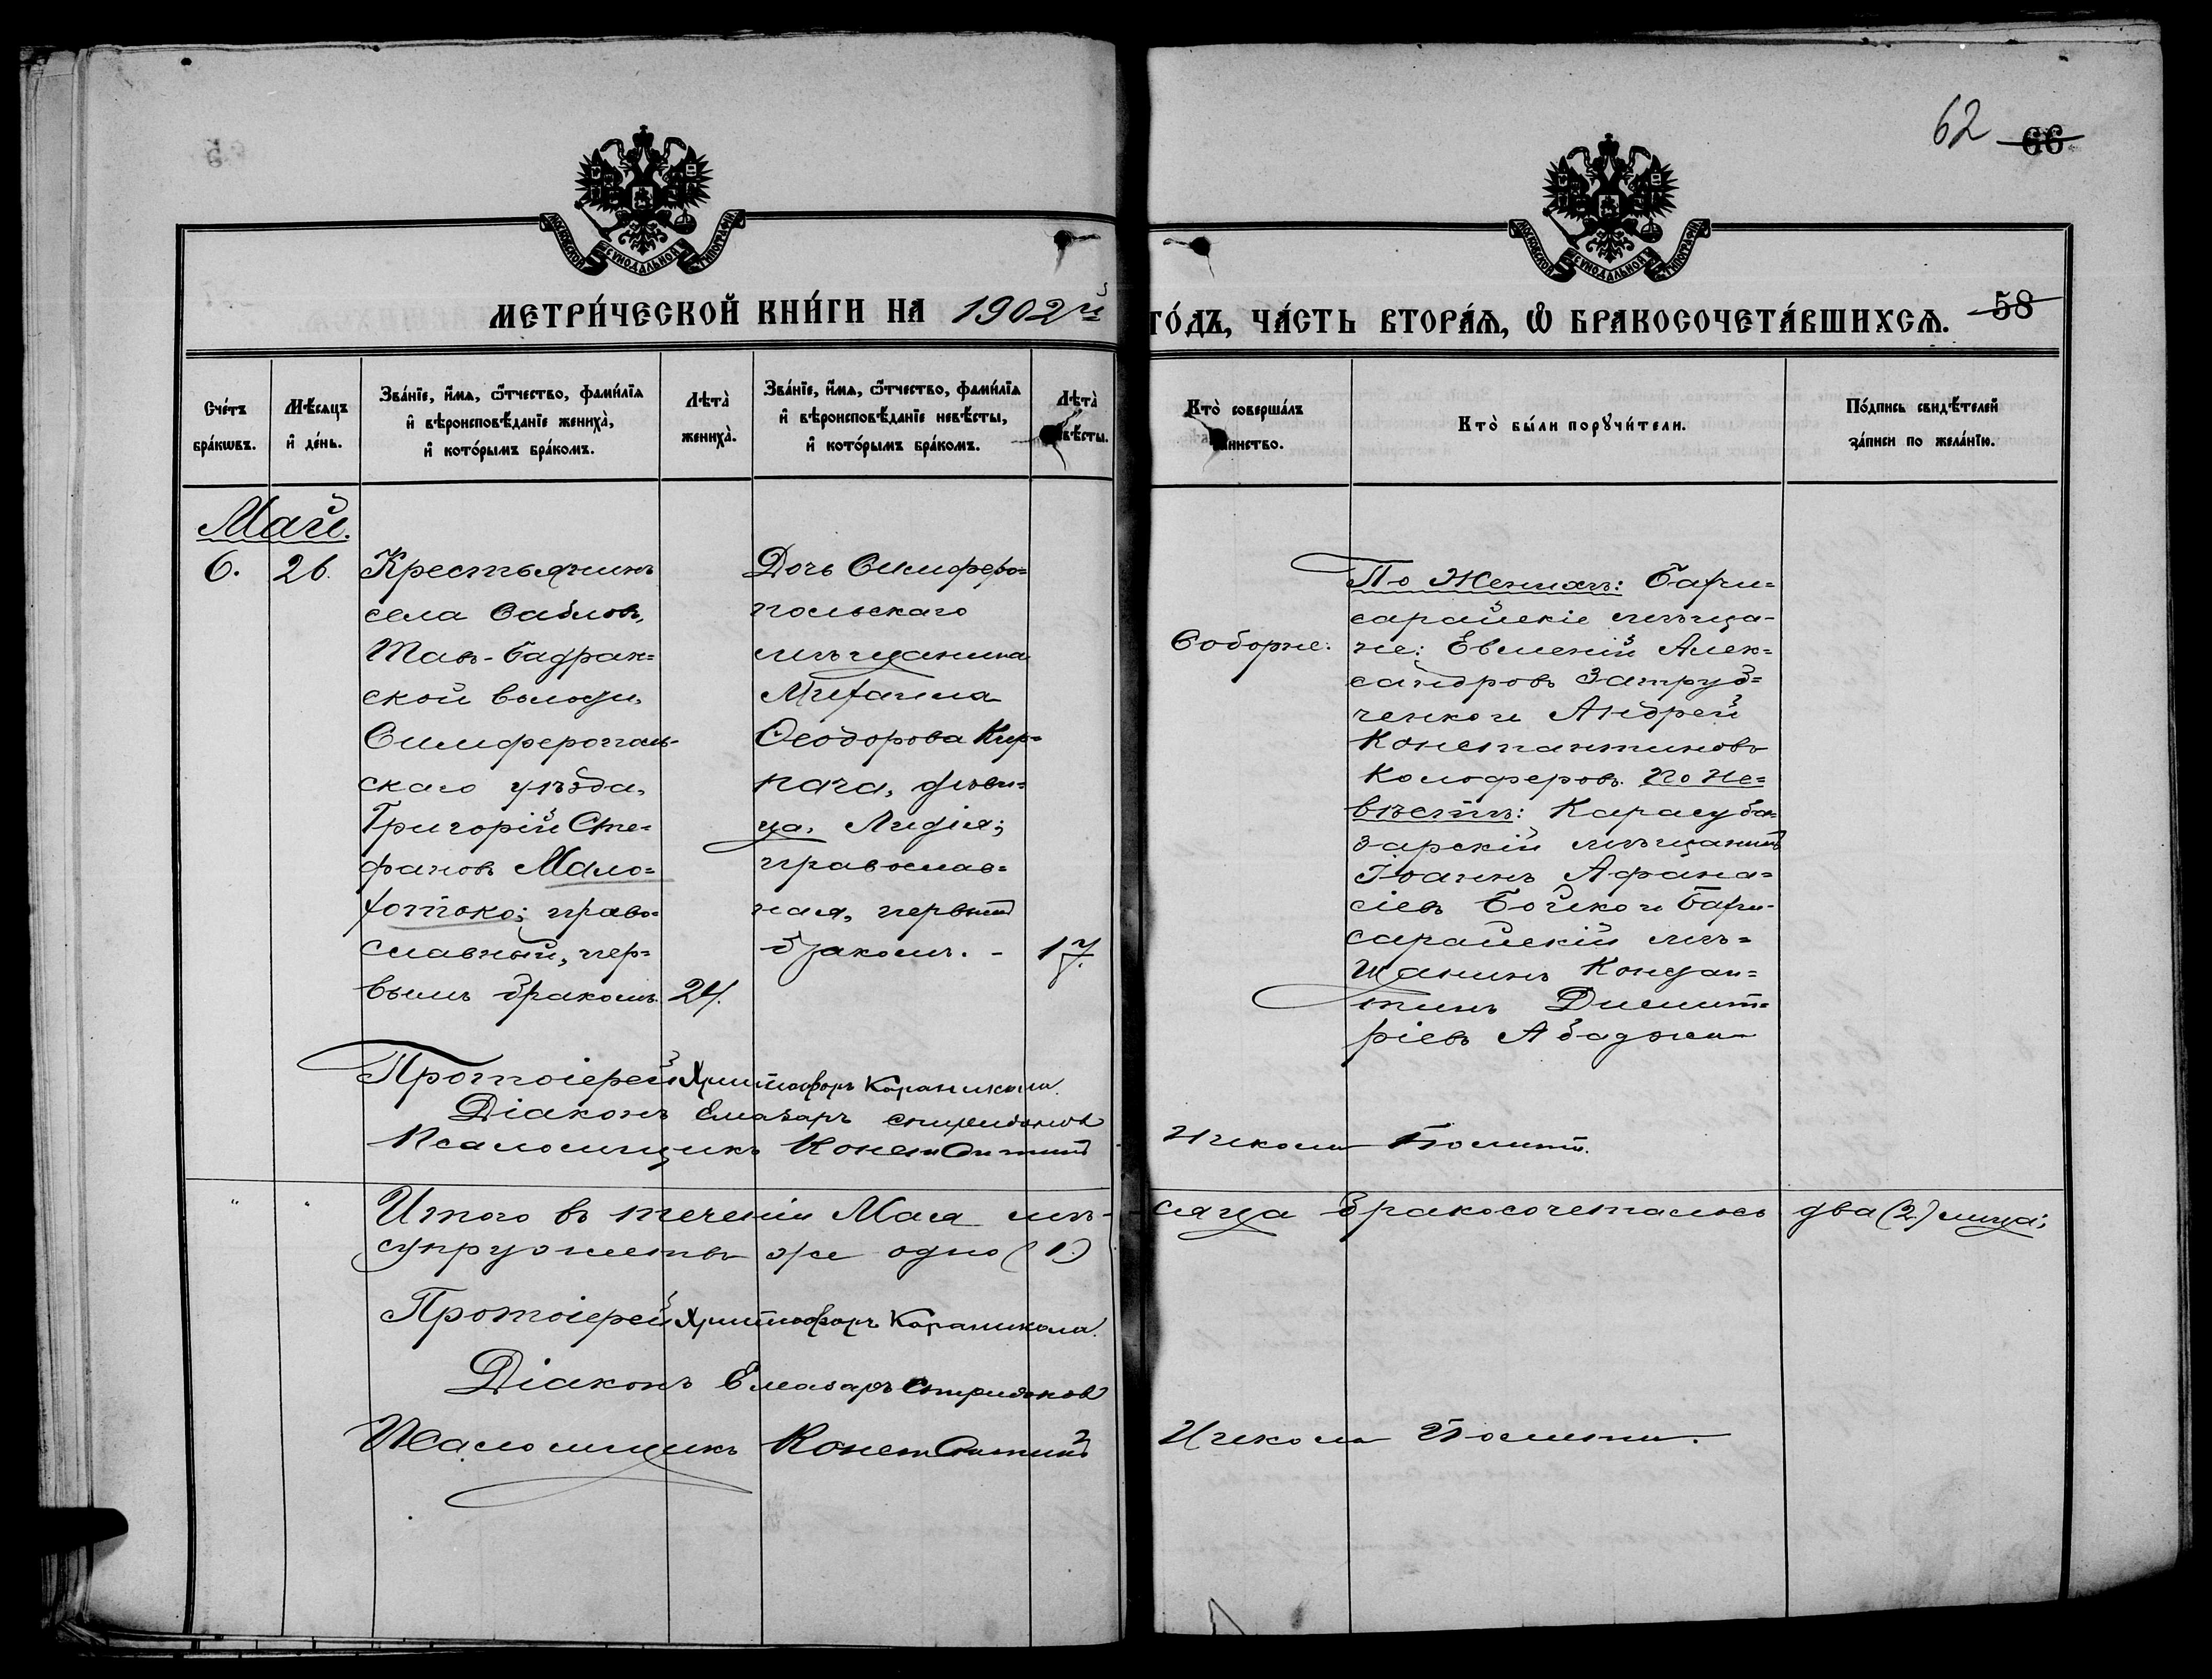 62 66
МОСКОВСКОЙ СУНОДАЛЬНОЙ ТИПОГРАФІИ
МОСКОВСКОЙ СУНОДАЛЬНОЙ ТИПОГРАФІИ
МЕТРИ́ЧЕСКОЙ КНИ́ГИ НА 1902й
ГО́ДЪ, ЧА́СТЬ ВТОРА́Ѧ, Ѿ БРАКОСОЧЕТА́ВШИХСѦ. 58
Сче́тъ
бра́кѡвъ.
Мѣ́сяцъ
и҆ де́нь.
Зва́нїе, и҆́мѧ, ѻ҆́тчество, фами́лїѧ
и҆ вѣроисповѣ́данїе жениха̀,
и҆ кото́рымъ бра́комъ.
Лѣта̀
жениха̀.
Зва́нїе, и҆́мѧ, ѻ҆́тчество, фами́лїѧ
и҆ вѣроисповѣ́данїе невѣ́сты,
и҆ кото́рымъ бра́комъ.
Лѣта̀
вѣ́сты.
Кто̀ соверша́лъ
инство.
Кто̀ бы́ли порꙋчи́тели.
По́дпись свидѣ́телей
за́писи по жела́нїю.
Май.
6.
26.
Крестьянинъ
села Саблов,
Тавъ-Бадрак=
ской волости,
Симферополь-
скаго уѣзда,
Григорій Сте=
фановъ Мало=
хотько; право=
славный, пер=
вымъ бракомъ.
24.
Дочь Симферо=
польскаго
мѣщанина
Михаила
Ѳеодорова Кир=
пача, дѣви=
ца, Лидія;
православ=
ная, первымъ
бракомъ. -
17.
Соборне:
По Женихѣ: Бахчи=
сарайскіе мѣща-
не: Евгеній Алек=
сандровъ Затруд=
ченко и Андрей
Константиновъ
Колоферовъ. По Не=
вѣстѣ: Карасуба=
зарскій мѣщанинъ
Іоаннъ Афана=
сіевъ Бойко и Бахчи-
сарайскій мѣ=
щанинъ Констан=
тинъ Димит=
ріевъ Абаджи
Протоіерей Христофоръ Караникола.
Діаконъ Елеазаръ Спиридоновъ
Псаломщикъ Константинъ
Николы
" "
Итого въ теченіи Мая мѣ-
сяца бракосочеталось два (2) лица;
супружествъ же одно (1.)
Протоіерей Христофоръ Караникола.
Діаконъ Елеазаръ Спиридоновъ
Псаломщикъ Константинъ
Николы